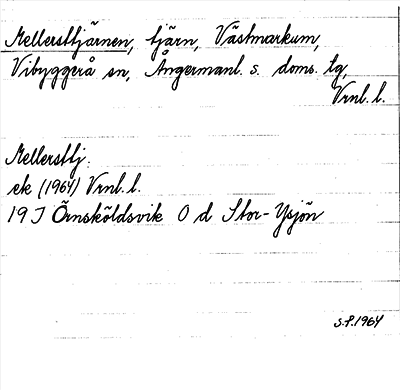 Mellersttjärnen, tjärn, Västmarkum,
Vibyggerå sn, Ångermanl. s. doms. tg,
Vrnl. l.
Mellersttj.
ek (1964) Vrnl. l.
19 J Örnsköldsvik O d Stor-Ysjön
S.P.1964